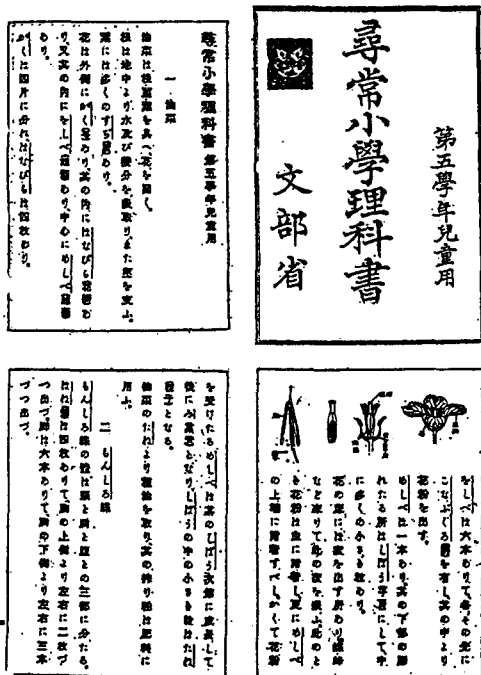 第五學年兒童用
尋常小學理科書
文部省
尋常小學理科書 第五學年兒童用
一 油菜
油菜は根莖葉を具へ、花を開く。
根は地中より水及び養分を吸取り、また莖を支ふ。
葉には多くのすぢあり。
花は外側にがくあり、其の内にはなびらあ
り、又其の内にをしべあり、中心にめしべ
あり。
がくは四片に分れ、はなびらは四枚あり。
をしべは六本ありて、各其の先に
こなぶくろを有し、其の中より
花粉を出す。
めしべは一本あり、其の下部の膨
れたる所はしばう子房にして、中
に多くの小さき粒あり。
花の底には蜜を出す所あり。
など來りて此の蜜を吸ふ。此のと
き花粉は蟲に附着し、更にめしべ
の上端に附着すべし。かくて花粉
を受けたるめしべは其のしばう次第に成長して
後にみとなり、しばうの中の小さき粒はたね
種子となる。
油菜のたねより種油を取り、其の搾り粕は肥料に
用ふ。
二 もんしろ蝶
もんしろ蝶の體は頭と胸と腹との三部に分たる。
はねは四枚ありて、胸の上側より左右に二枚づ
つ出づ。脚は六本ありて、胸の下側より左右に三本
づつ出づ。